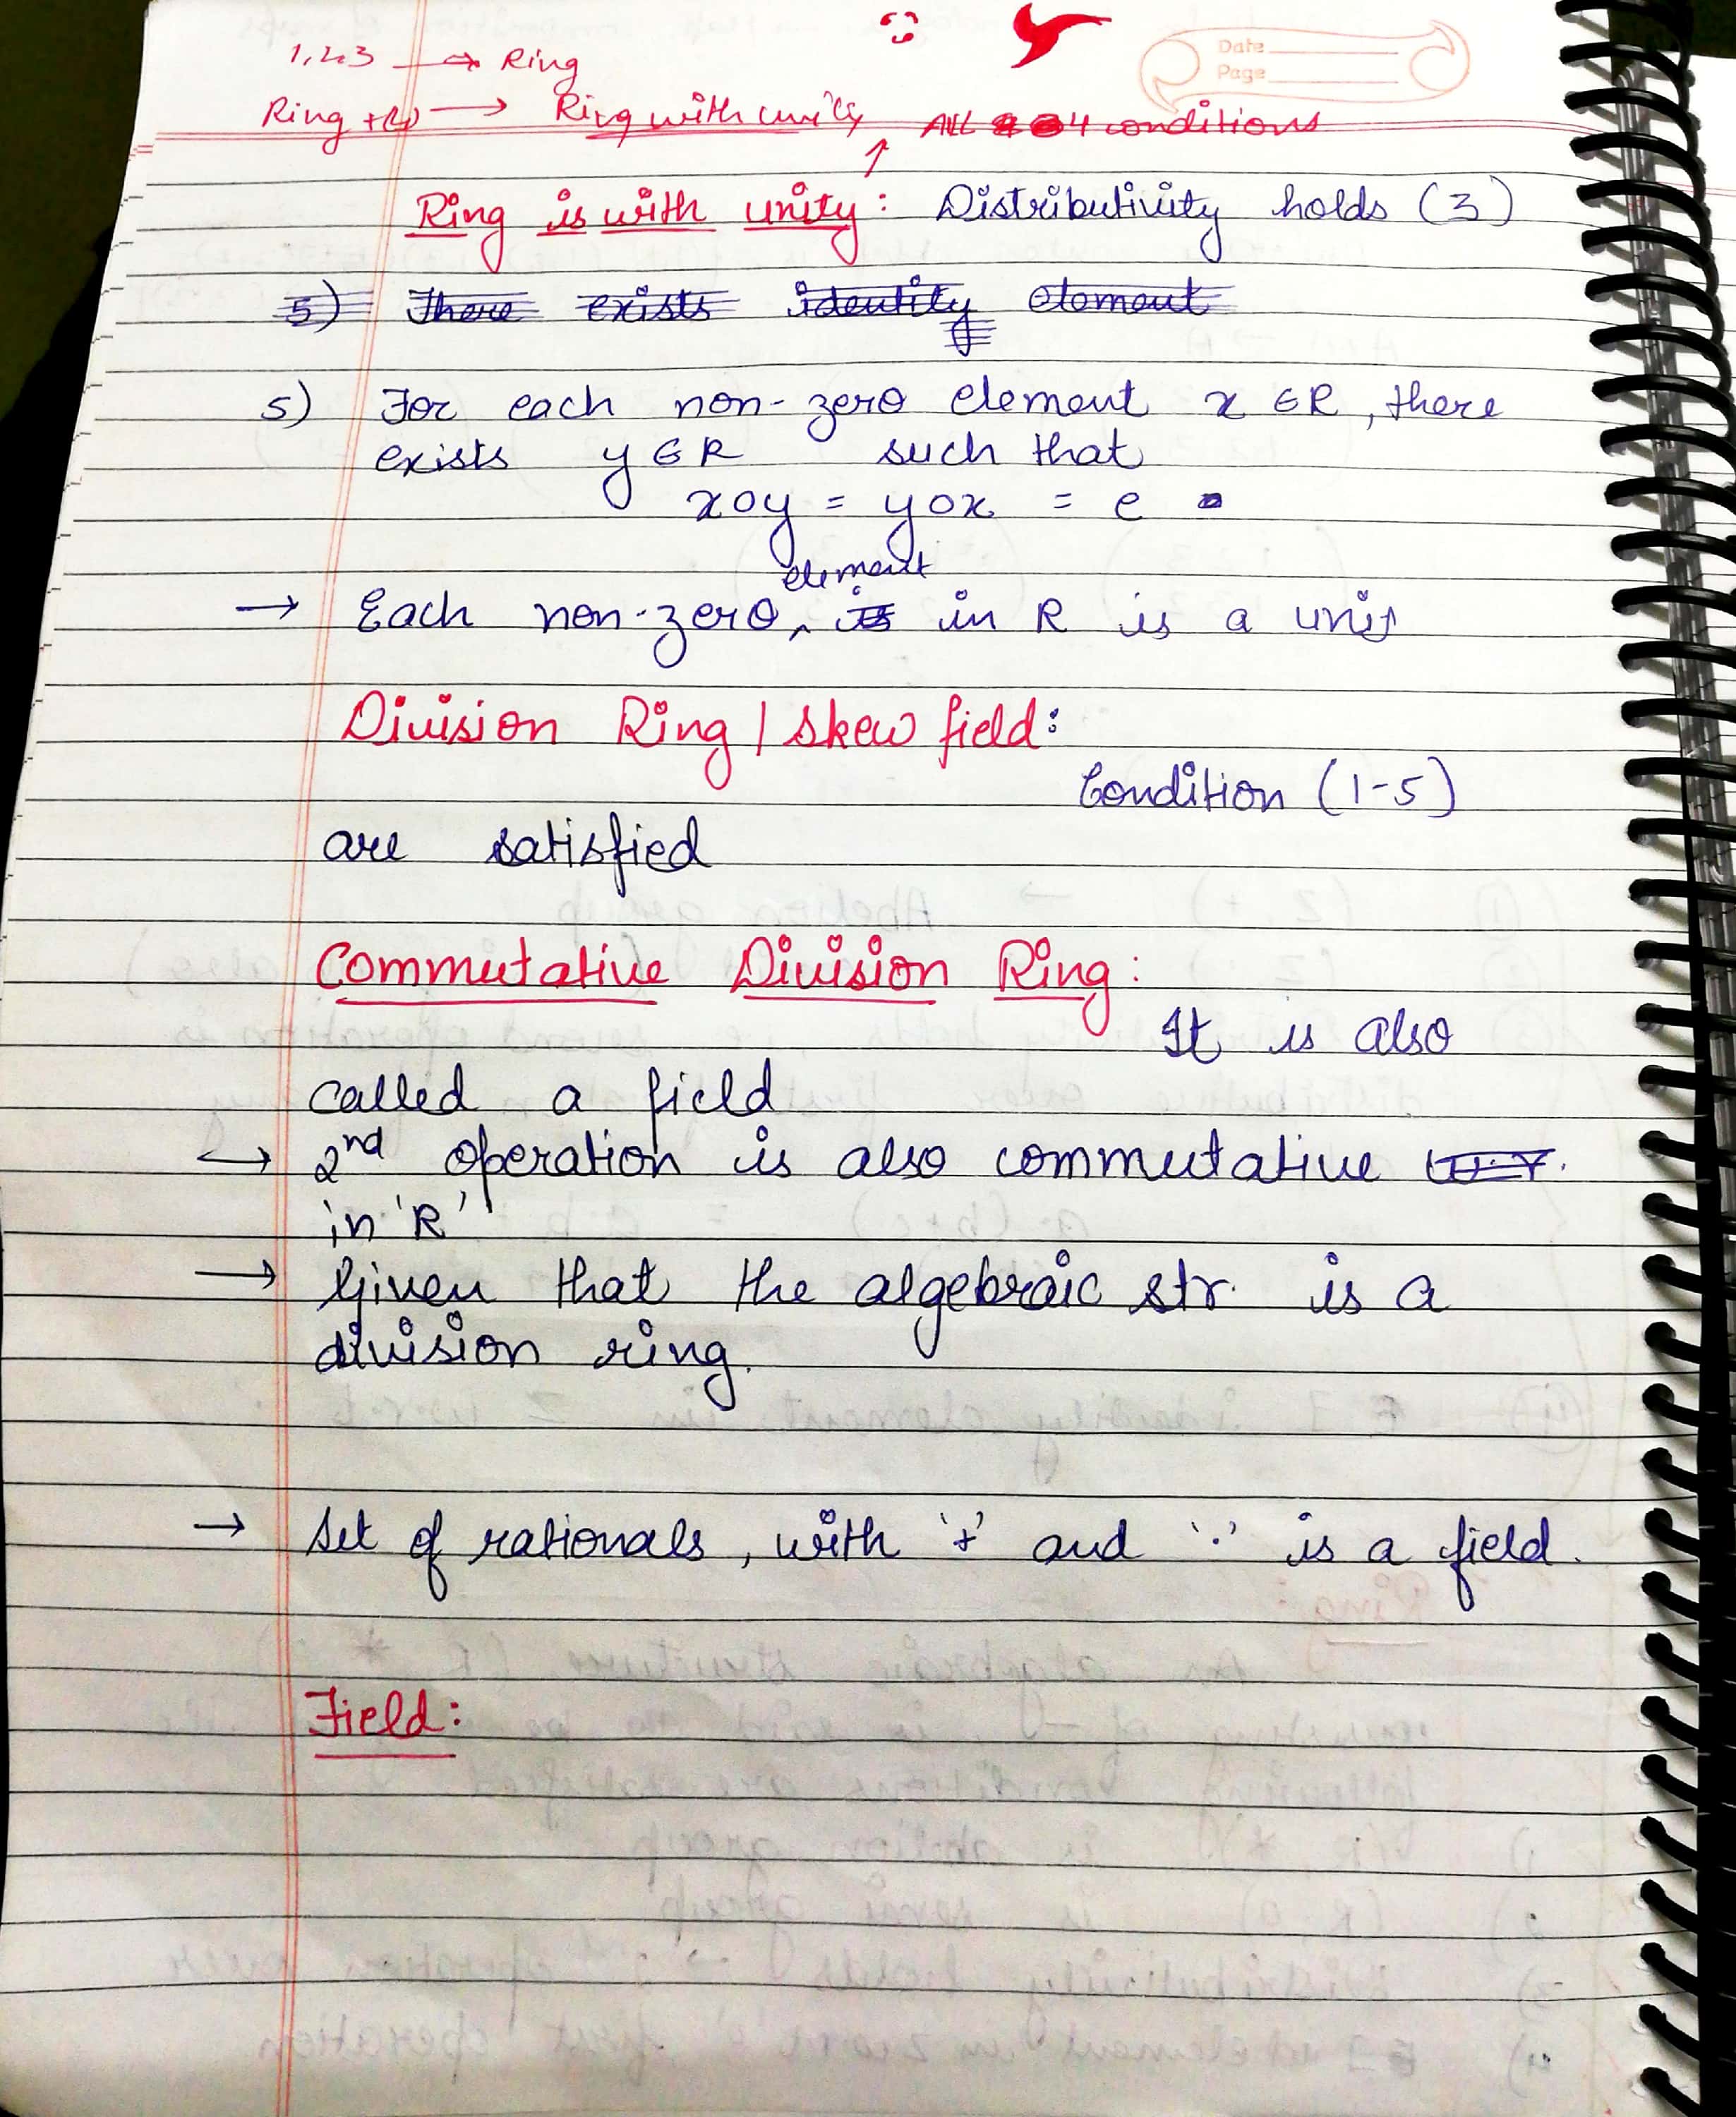 Date
Page
1,2,3 → Ring
Ring + (4) → Ring with unity All 4 conditions
↑
Ring is with unity: Distributivity holds (3)
5) There exists identity element
5) For each non-zero element x ∈ R, there
exists y ∈ R such that
x o y = y o x = e
element
→ Each non-zero ‸ in R is a unit
Division Ring / Skew field:
Condition (1-5)
are satisfied
Commutative Division Ring:
It is also
called a field
↪ 2nd operation is also commutative
in 'R'
→ Given that the algebraic str. is a
division ring.
→ Set of rationals, with '+' and '·' is a field.
Field: